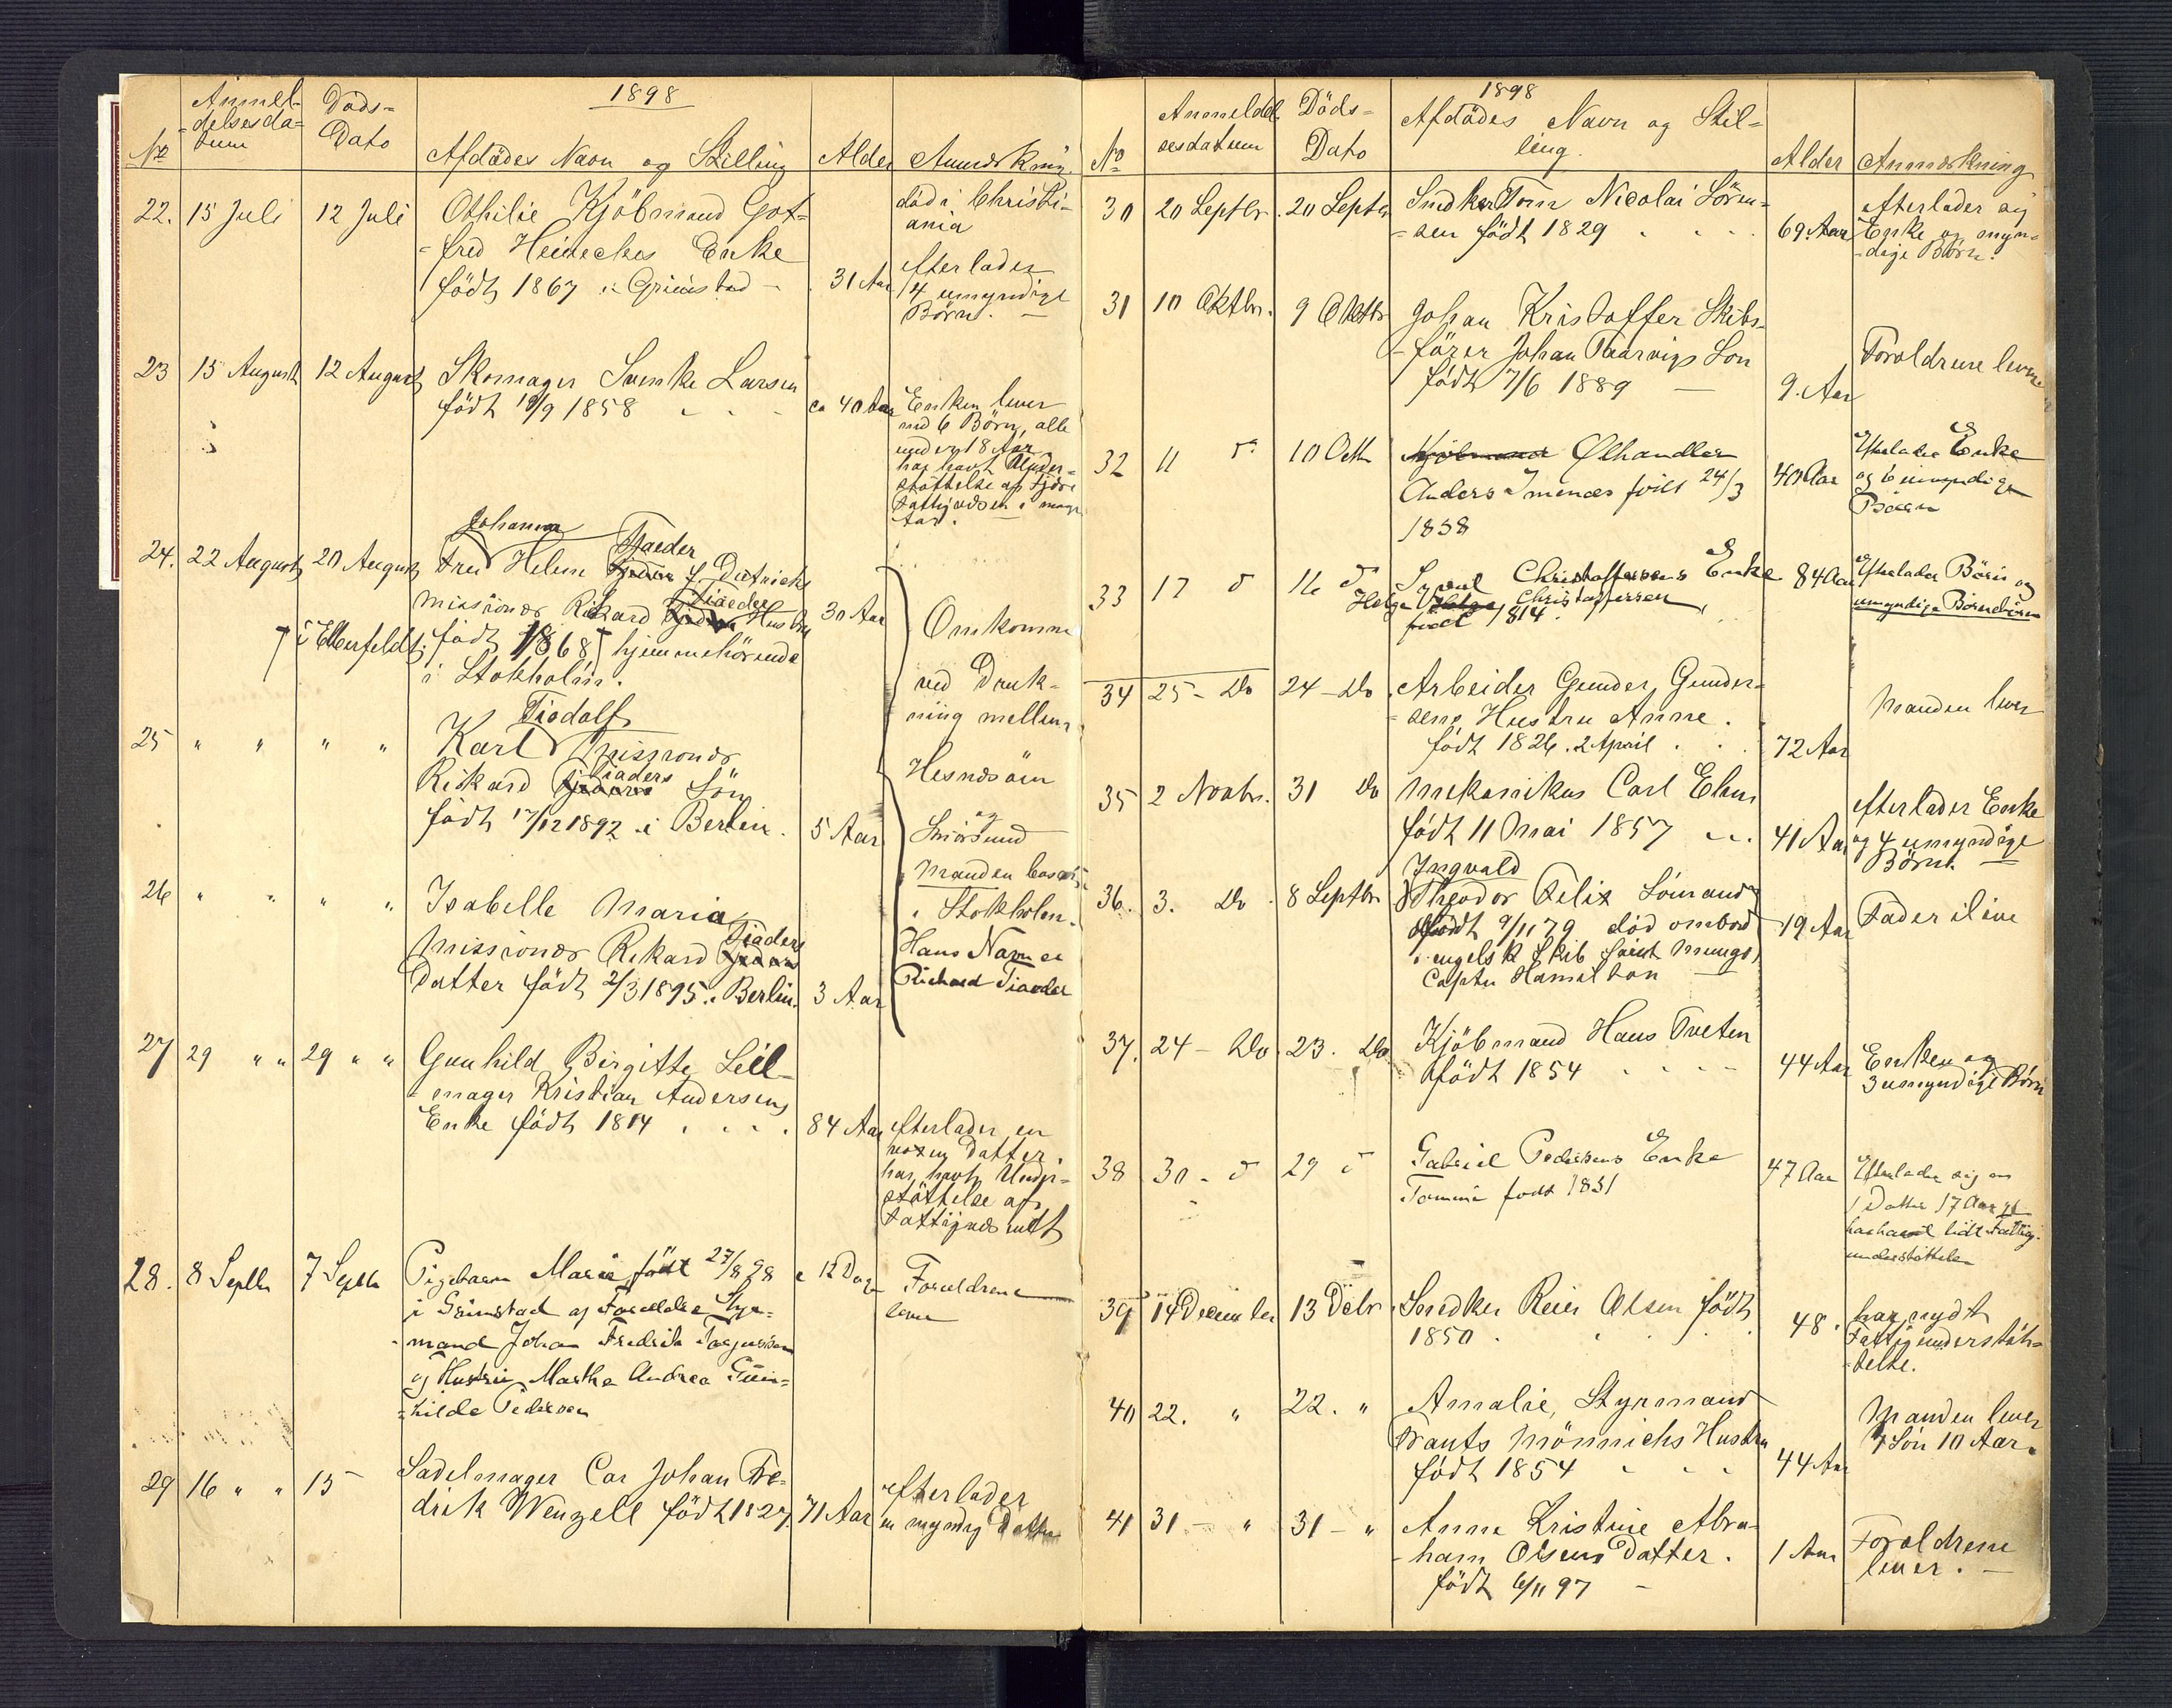 1898
No
Anmel-
delsesda-
tum
Döds-
Dato
Afdödes Navn og Stilling
Alder
Anmærkning
22. 15 Juli 12 Juli Othilie Kjöbmand Got-
fred Heineckes Enke
födt 1867 i Grimstad - 31 Aar
död i Christi-
ania
efterlader
4 umyndige
Börn. -
23 15 August 12 August Skomager Svenke Larsen
födt 18/9 1858 ca 40 Aar
Enken lever
med 6 Börn, alle
under 18 Aar
har havt Under-
støttelse af Fjære
Fattigvæsen i mange
Aar.
24. 22 August 20 August
Johanna
Fru Helene Tjaeder f. Dietrichs
missionær Rikard Tiaeder Hustru 30 Aar
i Elberfeldt födt 1868, hjemmehörende
i Stokholm.
25 " " " "
Tiodolf
Karl missionær
Rikard Tiaders Sön
födt 17/12 1892 i Berlin. 5 Aar
26 " " " "
Isabelle Maria
Missionær Rikard Tiaders
Datter födt 2/3 1895 i Berlin. 3 Aar
Omkomne
ved Druk-
ning mellem
Hesnæsöen
og
Smörsund
Manden bosat i
Stokholm.
Hans Navn er
Richard Tiaeder
27 29 " " 29 " " Gunhild Birgitte Seil-
mager Kristian Andersens
Enke födt 1814 . . . . 84 Aar
efterlader en
voxen Datter.
har havt Under-
stöttelse af
Fattigvæsenet
28. 8 Septbr 7 Septbr Pigebarn Marie født 27/8 98 c 12 Dage
i Grimstad af Foreldre Styr-
mand Johan Fredrik Torjussen
og Hustru Marthe Andrea Gun-
hilde Pedersen
Foreldrene
lever
29 16 " " 15 - Sadelmager Car Johan Fre-
drik Wenzell födt 1827. 71 Aar
efterlader
en myndig Datter
1898
No
Anmeldel-
sesdatum
Döds-
Dato
Afdödes Navn og Stil-
ling.
Alder
Anmærkning
30 20 Septbr. 20 Septbr Snedker Tom Nicolai Sören-
sen födt 1829 . . . 69 Aar
efterlader sig
Enke og myn-
dige Börn.
31 10 Oktbr. 9 Oktbr Johan Kristoffer Skibs-
förer Johan Taarvigs Sön
födt 7/6 1889 - 9. Aar
Foreldrene lever
32 11 do 10 Octb Kjøbmand Ølhandler
Anders Imenes født 24/3 40 Aar
1858
Efterlader Enke
og 6 umyndige
Børn
33 17 do 16 do Christoffersens Enke 84 Aar
Helga Christoffersen,
født 1814.
Efterlader Börn og
umyndige Børnebørn
34 25 - Do 24 - Do Arbeider Gunder Gunder-
sens Hustru Anne.
födt 1826. 2 April . . 72 Aar
Manden lever
35 2 Novbr. 31 Do Mekanikus Carl Ehm
födt 11 Mai 1857 41 Aar
efterlader Enke
og 4 umyndige
Börn.
36. 3. Do 8 Septbr
Ingvald
Theodor Felix Sömand
födt 9/11 79 död ombord 19 Aar
i engelsk Skib Saint Mungo
Captn Hamilton -
Fader ilive
37. 24 - Do 23. Do Kjöbmand Hans Tveten
födt 1854 . . . . 44 Aar
Enken og
3 umyndige Börn
38 30 - do 29 do Gabriel Pedersens Enke 47 Aar
Tomine født 1851
Efterlader sig en
1 Datter 17 Aar
har havt lidt Fattig-
understøttelse
39 14 December 13 Debr Snedker Reier Olsen födt
1850 . . . . 48.
har nydt
Fattigunderstöt-
telse.
40 22. " 22. " Amalie, Styrmand
Frants Mönnichs Hustru
födt 1854 - - - 44 Aar
Manden lever
1 Sön 10 Aar.
41 31 - " 31 - " Anne Kristine Abra-
ham Olsens Datter. 1 Aar
födt 6/11 97 -
Foreldrene
lever. -